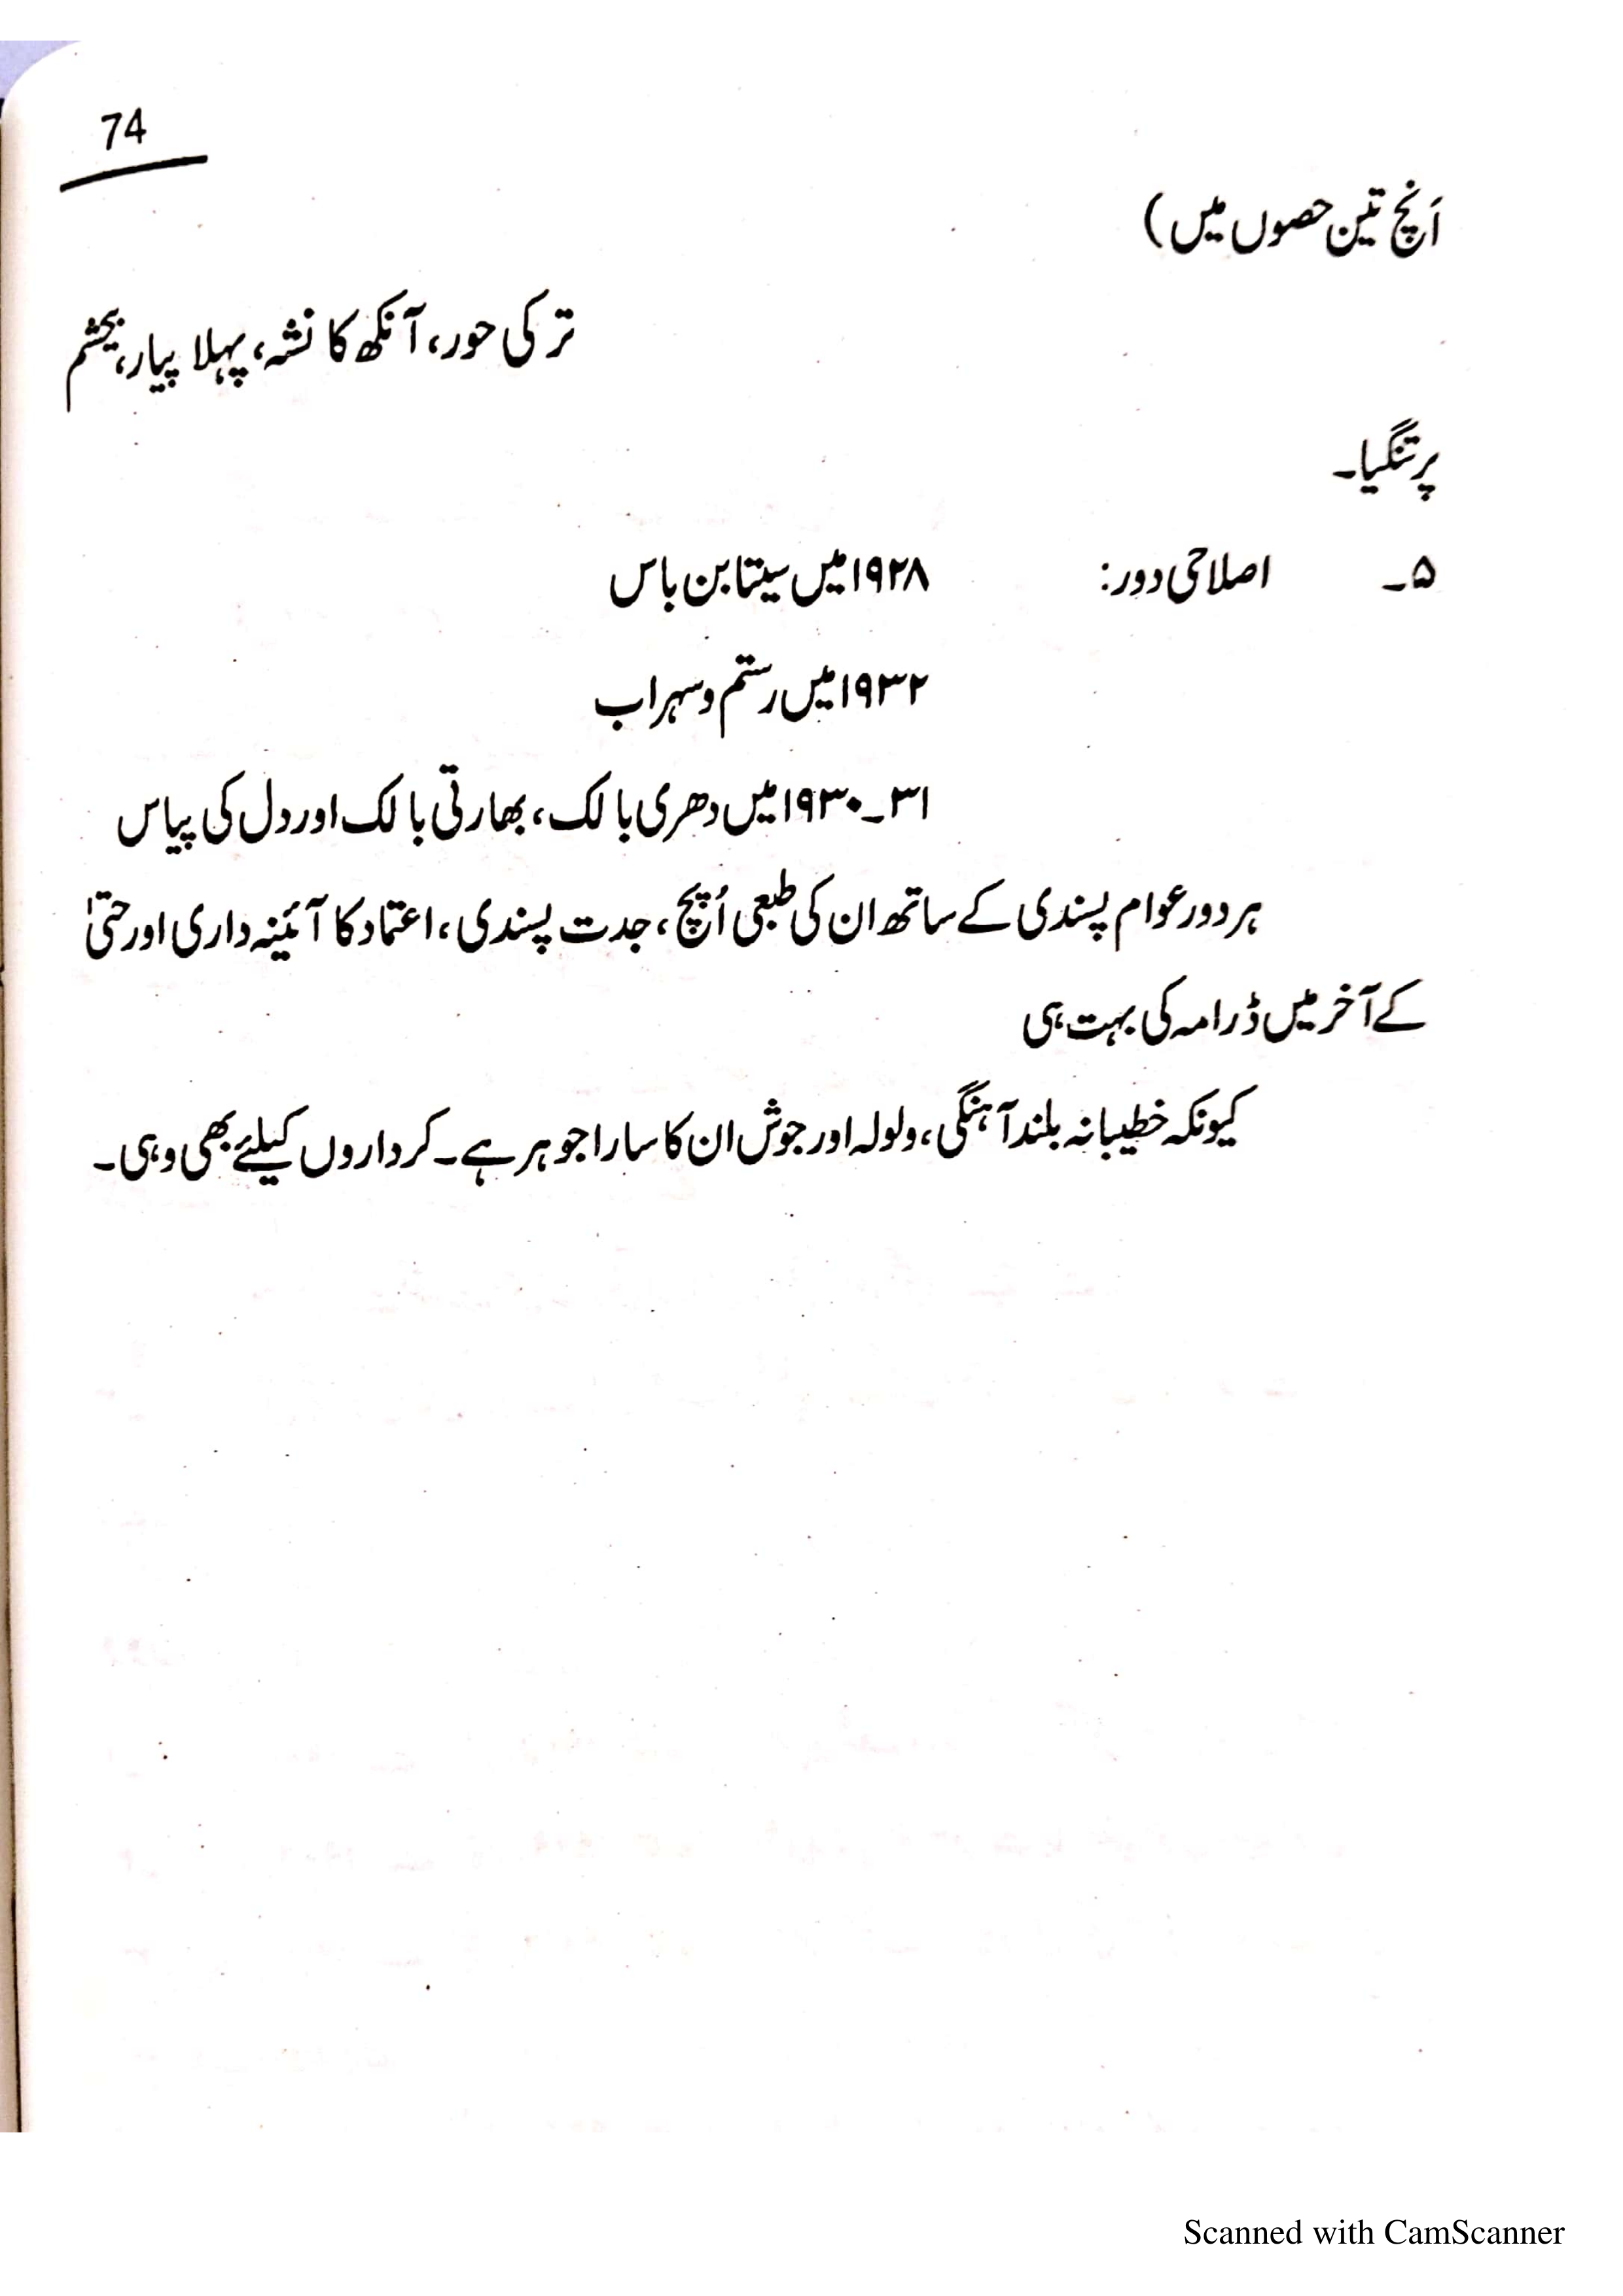 74
اَنچ تین حصوں میں)
ترکی حور، آنکھ کا نشہ، پہلا پیار، بھشم
پرتنگیا۔
۵۔ اصلاحی دور: ۱۹۲۸ میں سیتا بن باس
۱۹۳۲ میں رستم و سہراب
۱۹۳۰۔۳۱ میں دھری بالک، بھارتی بالک اور دل کی پیاس
ہر دور عوام پسندی کے ساتھ ان کی طبعی اُپچ، جدت پسندی، اعتماد کا آئینہ داری اور حتیٰ
کے آخر میں ڈرامہ کی بہت ہی
کیونکہ خطیبانہ بلند آہنگی، ولولہ اور جوش ان کا سارا جوہر ہے۔ کرداروں کیلئے بھی وہی۔
Scanned with CamScanner